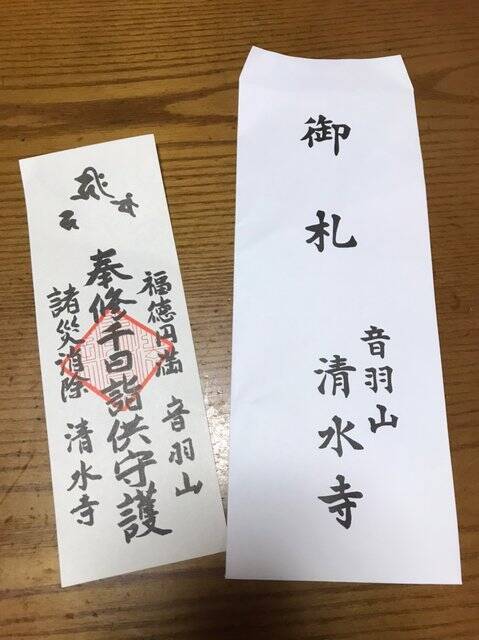 福徳円満 音羽山
奉修千日詣供守護
諸災消除 清水寺
御札
音羽山
清水寺